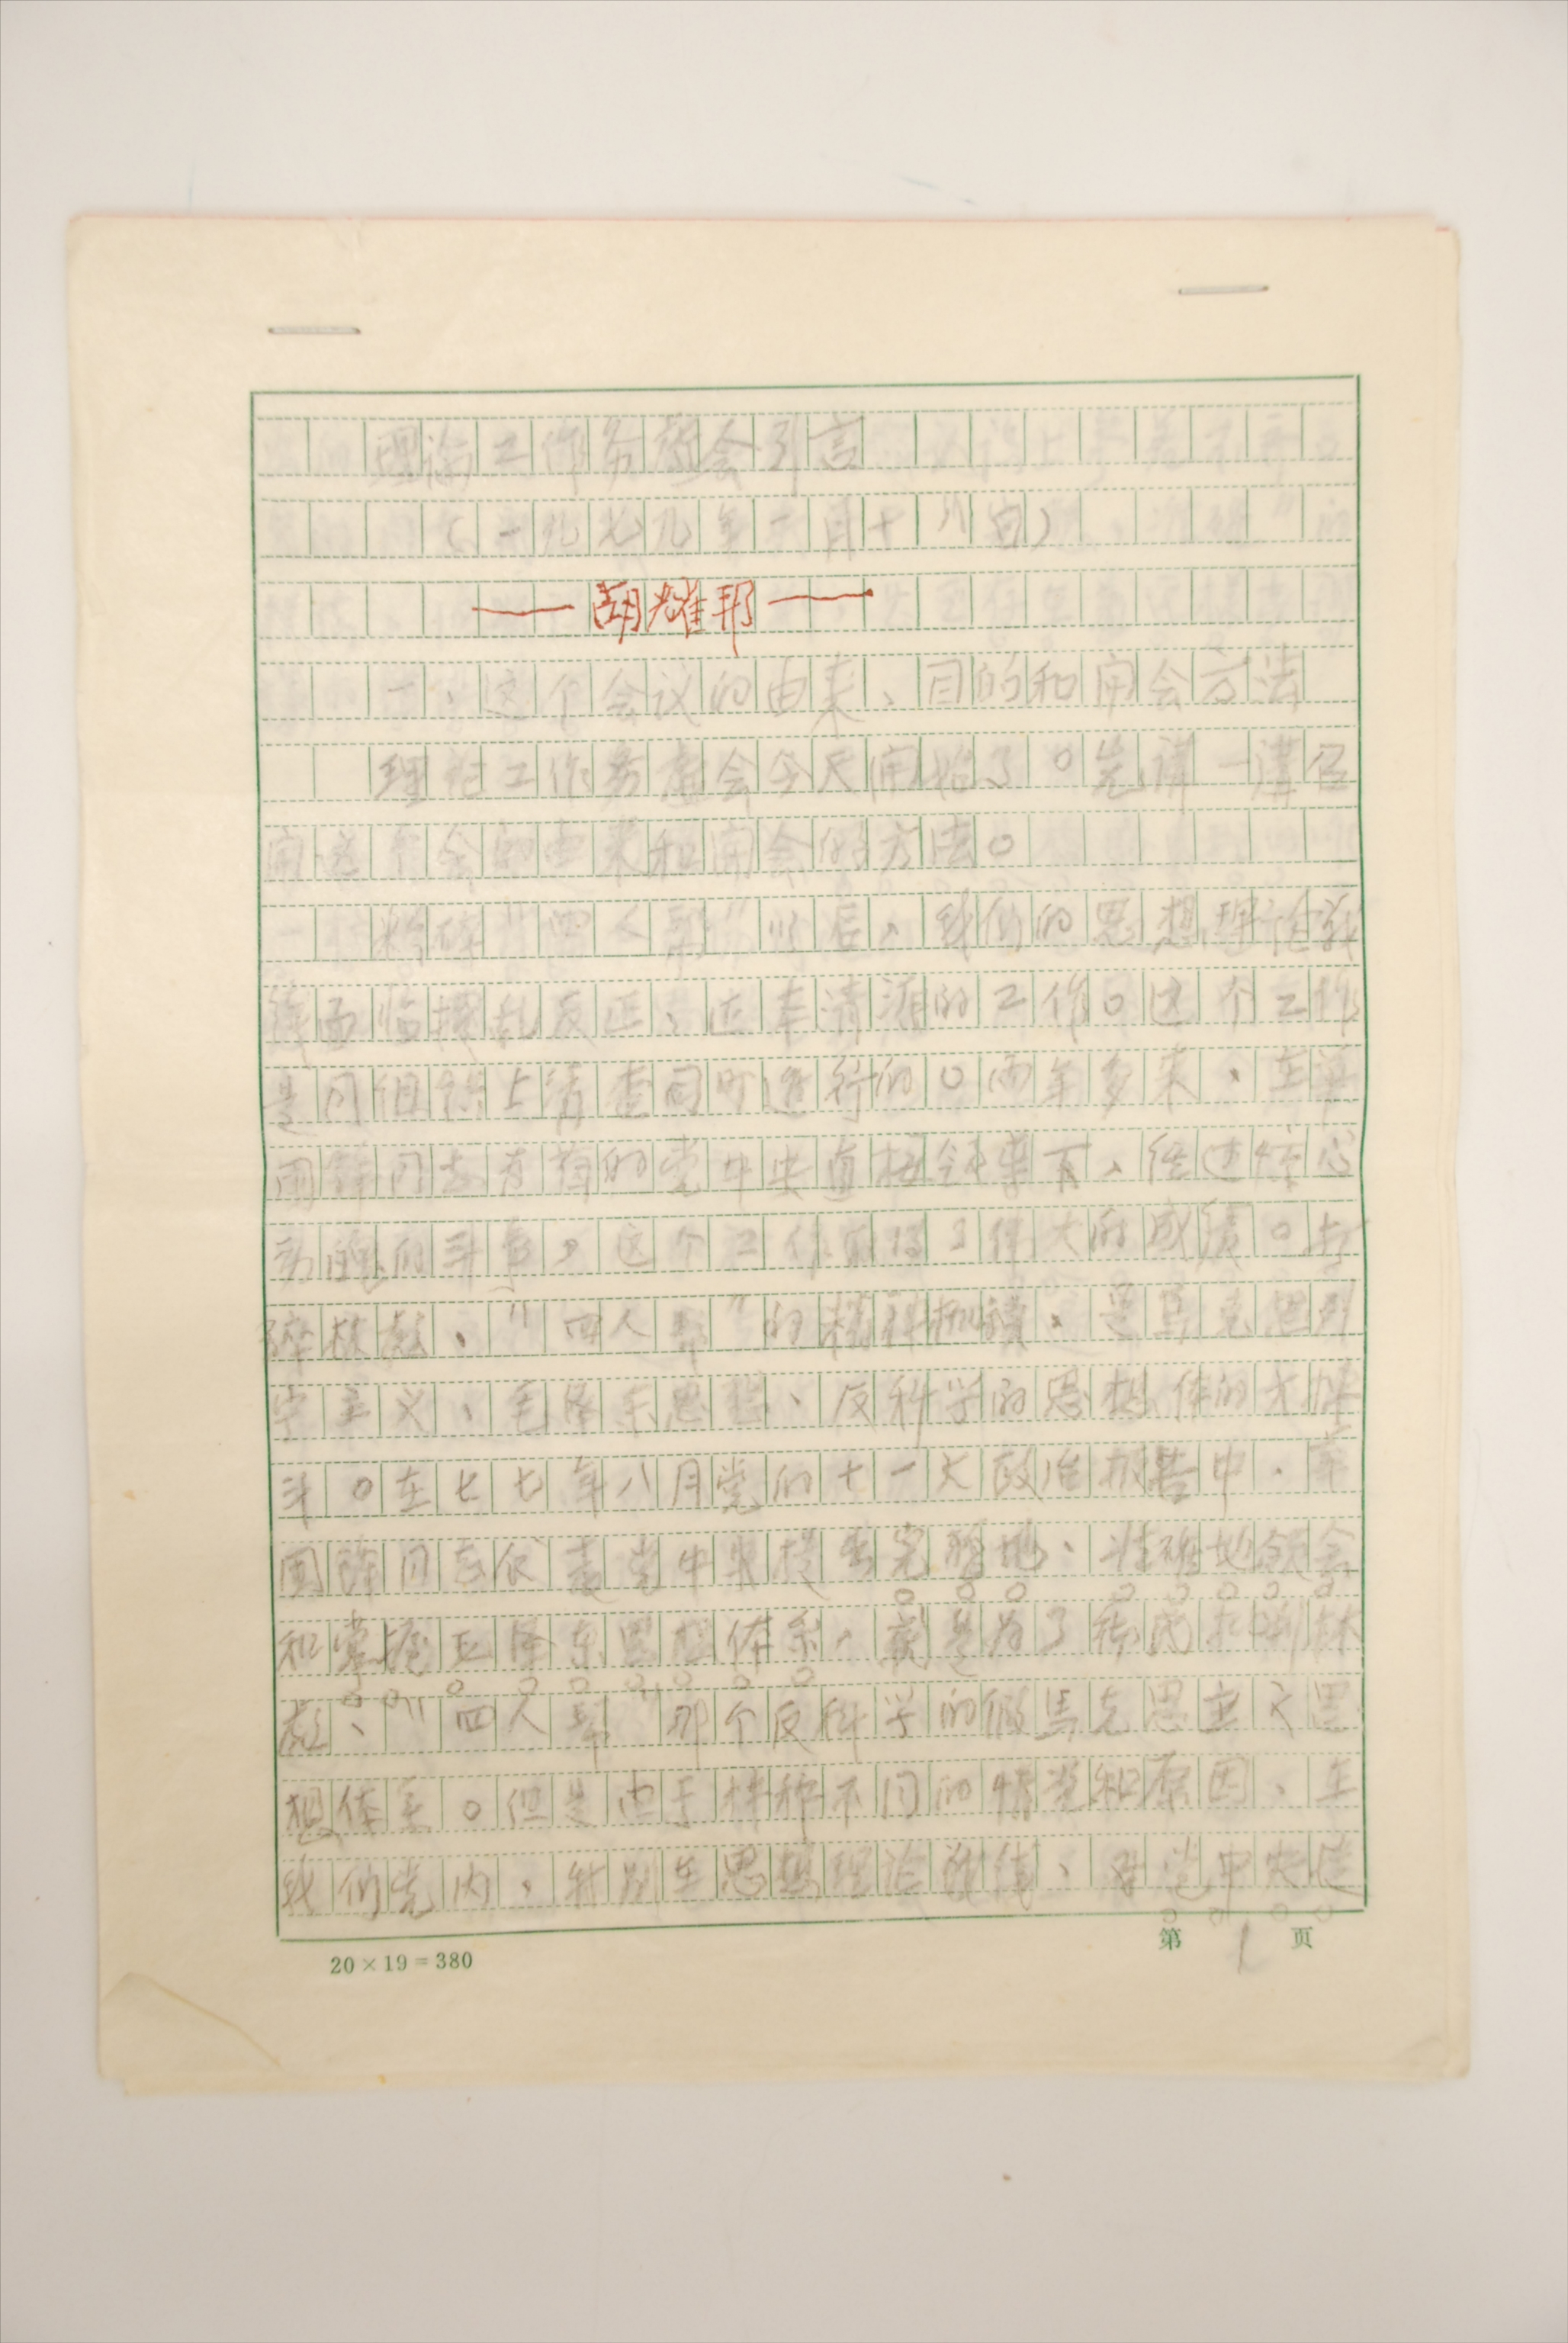 理论工作务虚会引言
（一九七九年一月十八日）
——胡耀邦——
一、这个会议的由来、目的和开会方法
理论工作务虚会今天开始了。先讲一讲召
开这个会的由来和开会的方法。
粉碎“四人帮”以后，我们的思想理论战
线面临拨乱反正、正本清源的工作。这个工作
是同组织上清查同时进行的。两年多来，在华
国锋同志为首的党中央直接领导下，经过惊心
动魄的斗争，这个工作取得了伟大的成绩。打
碎林彪、“四人帮”的精神枷锁，是马克思列
宁主义、毛泽东思想、反科学的思想体的大
斗。在七七年八月党的十一大政治报告中，华
国锋同志代表党中央提出完整地、准确地领会
和掌握毛泽东思想体系，就是为了彻底粉碎林
彪、“四人帮”那个反科学的假马克思主义思
想体系。但是由于种种不同的情况和原因，在
我们党内，特别在思想理论战线，对党中央这
20×19=380
第1页